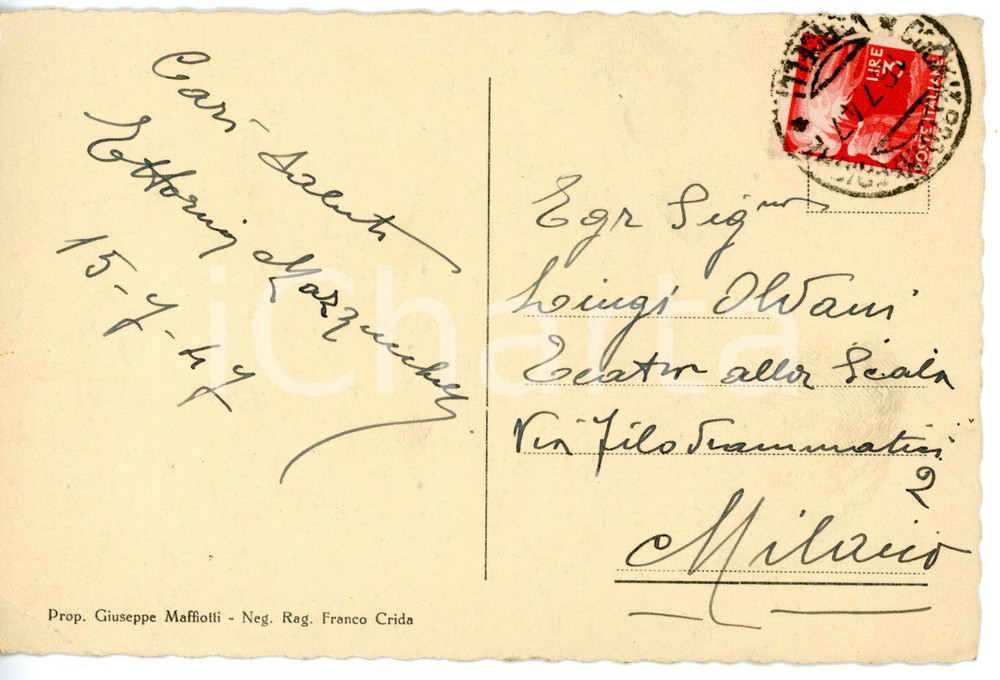 Cari saluti
Ettorina Mazzucchelli
15-7-47
Prop. Giuseppe Maffiotti - Neg. Rag. Franco Crida
LIRE
3
POSTE ITALIANE
Egr Sig
Luigi Oldani
Teatro alla Scala
Via Filodrammatici
2
Milano
iCharta